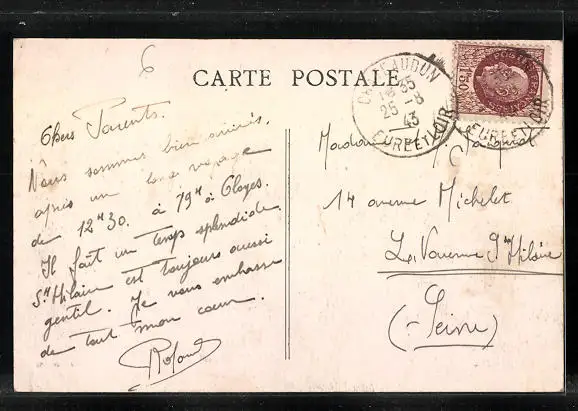 6
CARTE POSTALE
CHATEAUDUN
18 35
25 -8
43
EURE ET LOIR
EURE ET LOIR
Chers Parents.
Nous sommes bien arrivés.
après un long voyage
de 12H30. à 19H à Cloyes.
Il fait un temps splendide.
St Hilaire est toujours aussi
gentil. Je vous embrasse
de tout mon coeur.
Roland
Madame
14 avenue Michelet
La Varenne St Hilaire
(Seine)